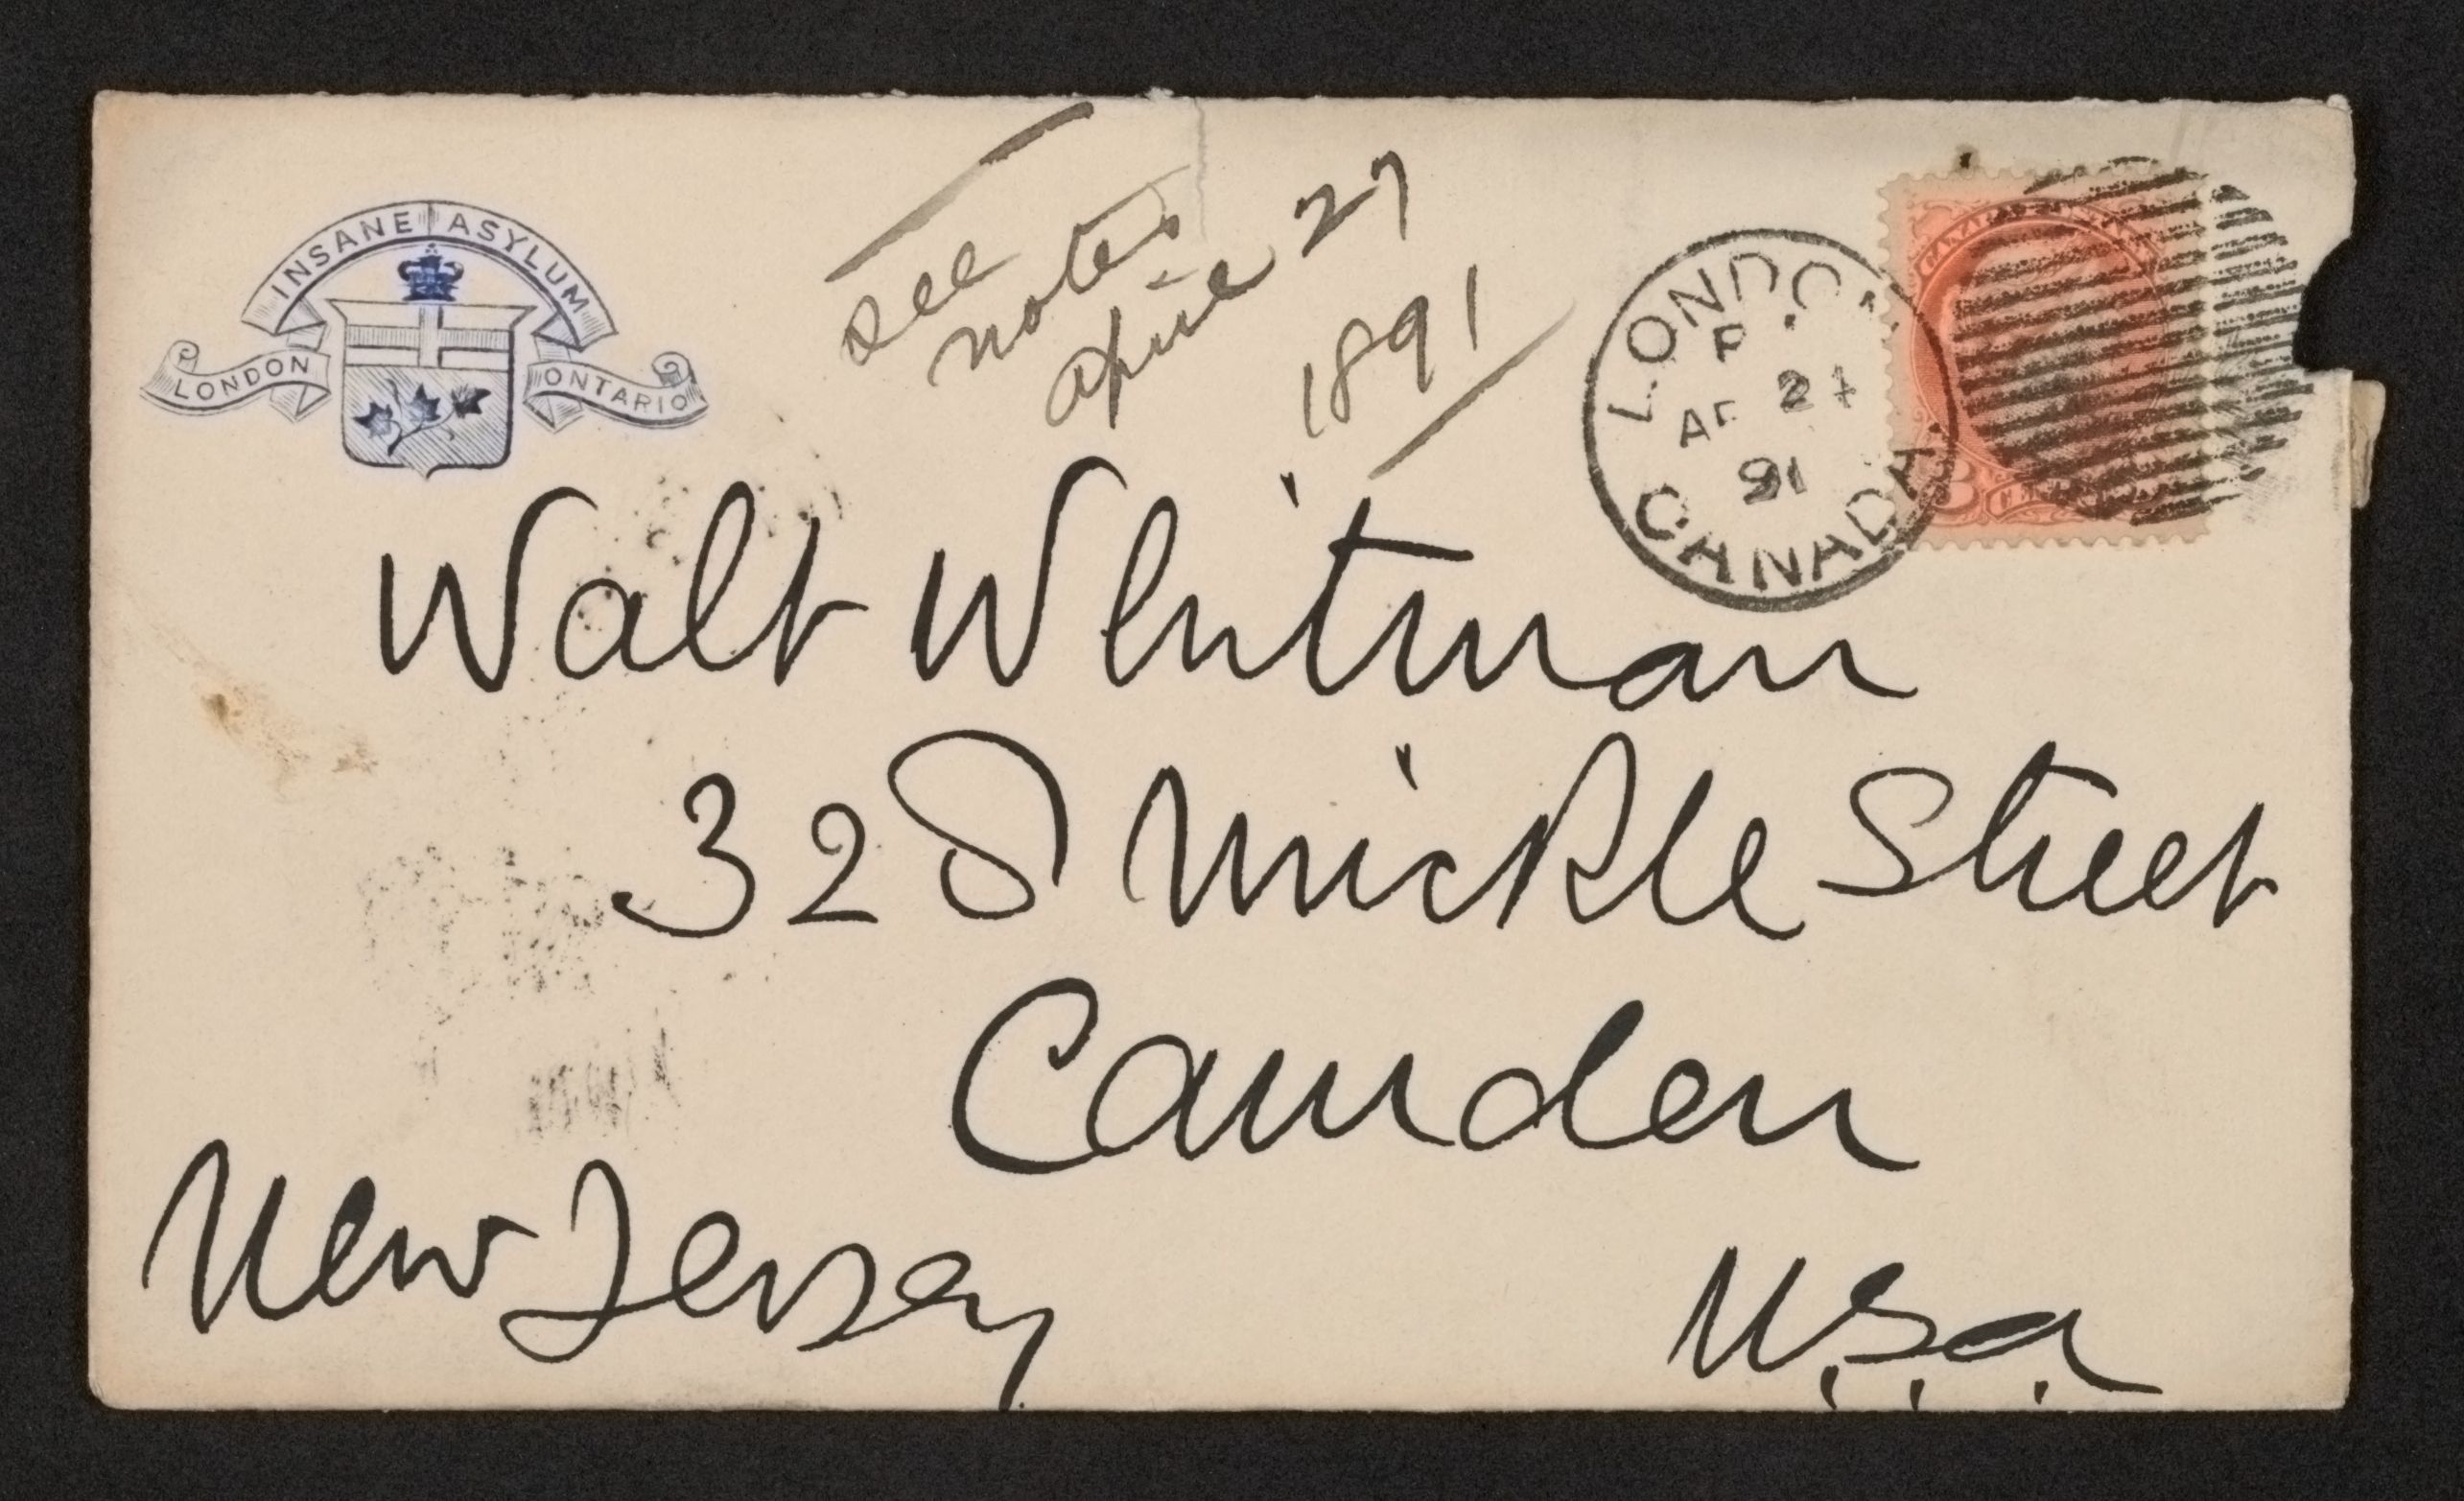 INSANE ASYLUM
LONDON ONTARIO
see
notes
April 27
1891
LONDON
P
AP 2
91
CANADA
3
Walt Whitman
328 Mickle Street
Camden
New Jersey
U.S.a.